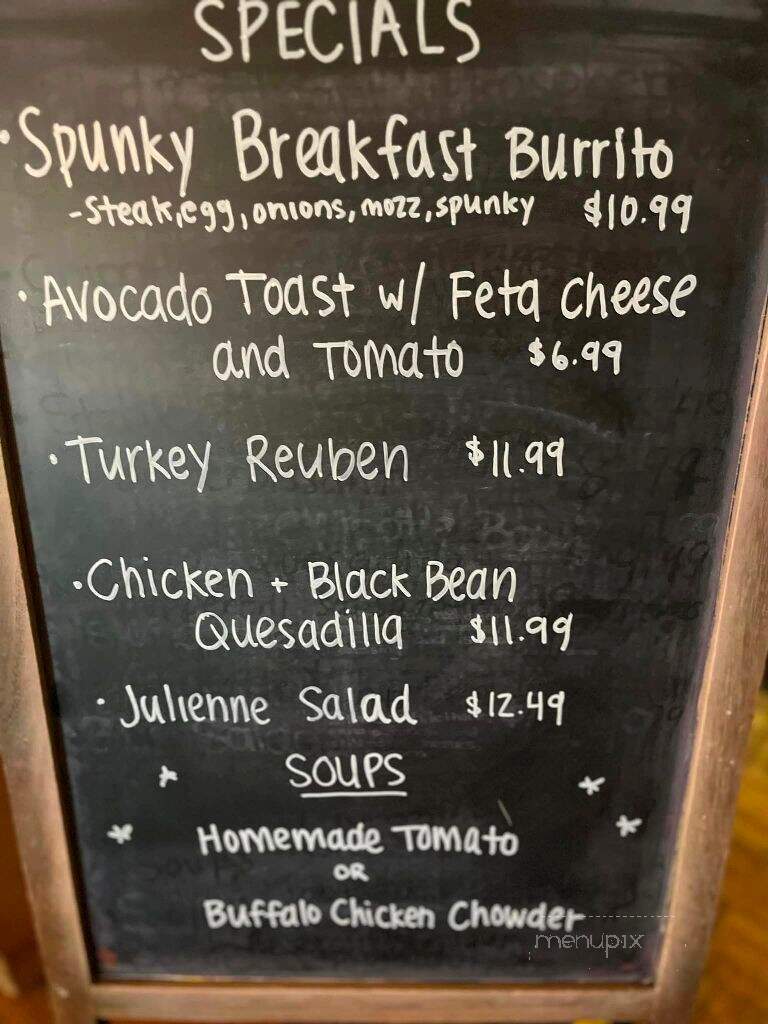 SPECIALS
• Spunky Breakfast Burrito
- Steak, egg, onions, mozz, spunky $10.99
• Avocado Toast w/ Feta Cheese
and Tomato $6.99
• Turkey Reuben $11.99
• Chicken + Black Bean
Quesadilla $11.99
• Julienne Salad $12.49
SOUPS
Homemade Tomato
OR
Buffalo Chicken Chowder
menupix